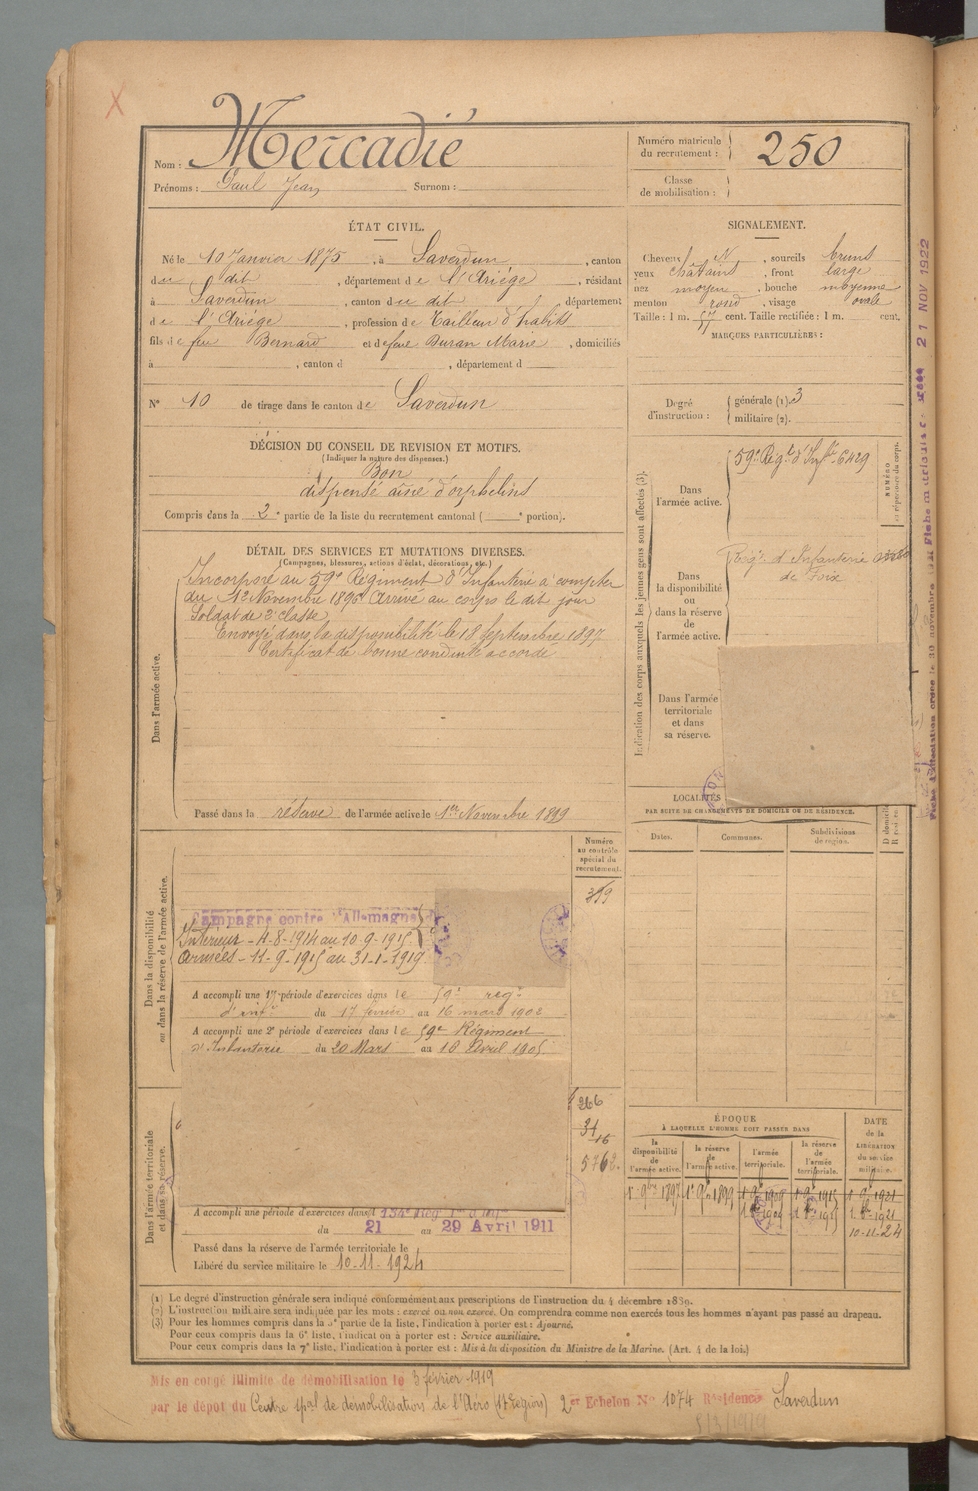 Nom : Mercadié
Prénoms : Paul Jean Surnom :
Numéro matricule du recrutement : 250
Classe de mobilisation :
ÉTAT CIVIL.
Né le 10 Janvier 1875, à Saverdun, canton
du dit, département de l'Ariège, résidant
à Saverdun, canton du dit, département
de l'Ariège, profession de Tailleur d'habits
fils de feu Bernard et de feue Duran Marie, domiciliés
à , canton d , département d
N° 10 de tirage dans le canton de Saverdun
SIGNALEMENT.
Cheveux N, sourcils bruns
yeux châtains, front large
nez moyen, bouche moyenne
menton rond, visage ovale
Taille : 1 m. 57 cent. Taille rectifiée : 1 m. cent.
MARQUES PARTICULIÈRES :
Degré d'instruction : générale (1). 3
militaire (2).
DÉCISION DU CONSEIL DE REVISION ET MOTIFS.
(Indiquer la nature des dispenses.)
Bon
dispensé ainé d'orphelins
Compris dans la 2e partie de la liste du recrutement cantonal ( e portion).
DÉTAIL DES SERVICES ET MUTATIONS DIVERSES.
(Campagnes, blessures, actions d'éclat, décorations, etc.)
Dans l'armée active.
Incorporé au 59e Régiment d'Infanterie à compter
du 12 Novembre 1896 Arrivé au corps le dit jour
Soldat de 2e classe
Envoyé dans la disponibilité le 18 Septembre 1897
Certificat de bonne conduite accordé
Passé dans la réserve de l'armée active le 1er Novembre 1899
Indication des corps auxquels les jeunes gens sont affectés (3).
Dans l'armée active.
59e Régt d'Infie 6429
NUMÉRO
au répertoire du corps.
Dans la disponibilité ou dans la réserve de l'armée active.
Régt d'Infanterie
de Foix
Dans l'armée territoriale et dans sa réserve.
LOCALITÉS
PAR SUITE DE CHANGEMENTS DE DOMICILE OU DE RÉSIDENCE.
Dates. Communes. Subdivisions de région.
D domicile
Dans la disponibilité ou dans la réserve de l'armée active.
Numéro au contrôle spécial du recrutement.
399
Campagne contre l'Allemagne
Intérieur - 4-8-1914 au 10-9-1915
Armées - 11-9-1915 au 31-1-1919
A accompli une 1re période d'exercices dans le 59e régt
d'infie du 17 février au 16 mars 1902
A accompli une 2e période d'exercices dans le 59e Régiment
d'Infanterie du 20 Mars au 16 Avril 1905
Dans l'armée territoriale et dans sa réserve.
266
34
16
5762.
A accompli une période d'exercices dans l
du 21 au 29 Avril 1911
Passé dans la réserve de l'armée territoriale le
Libéré du service militaire le 10-11-1924
ÉPOQUE
À LAQUELLE L'HOMME DOIT PASSER DANS
la disponibilité de l'armée active. la réserve de l'armée active. l'armée territoriale. la réserve de l'armée territoriale.
DATE de la LIBÉRATION du service militaire.
1er 9bre 1897 1er 9bre 1899 1er 9bre 1909 1er 9bre 1915 1er 9bre 1921
10-11-24
(1) Le degré d'instruction générale sera indiqué conformément aux prescriptions de l'instruction du 4 décembre 1889.
(2) L'instruction militaire sera indiquée par les mots : exercé ou non exercé. On comprendra comme non exercés tous les hommes n'ayant pas passé au drapeau.
(3) Pour les hommes compris dans la 5e partie de la liste, l'indication à porter est : Ajourné.
Pour ceux compris dans la 6e liste, l'indication à porter est : Service auxiliaire.
Pour ceux compris dans la 7e liste, l'indication à porter est : Mis à la disposition du Ministre de la Marine. (Art. 4 de la loi.)
Mis en congé illimité de démobilisation le 3 février 1919
par le dépôt du Centre spal de démobilisation de l'Aéro (17e région) 2e Echelon N° 1074 Résidence Saverdun
21 NOV 1922